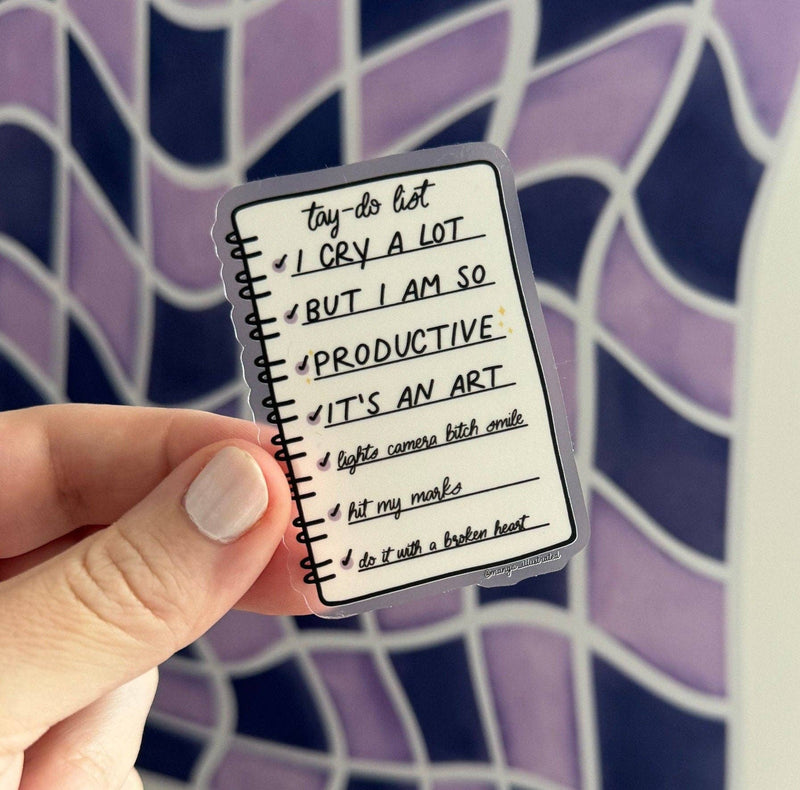 tay-do list
I CRY A LOT
BUT I AM SO
PRODUCTIVE
IT'S AN ART
lights camera bitch smile
hit my marks
do it with a broken heart